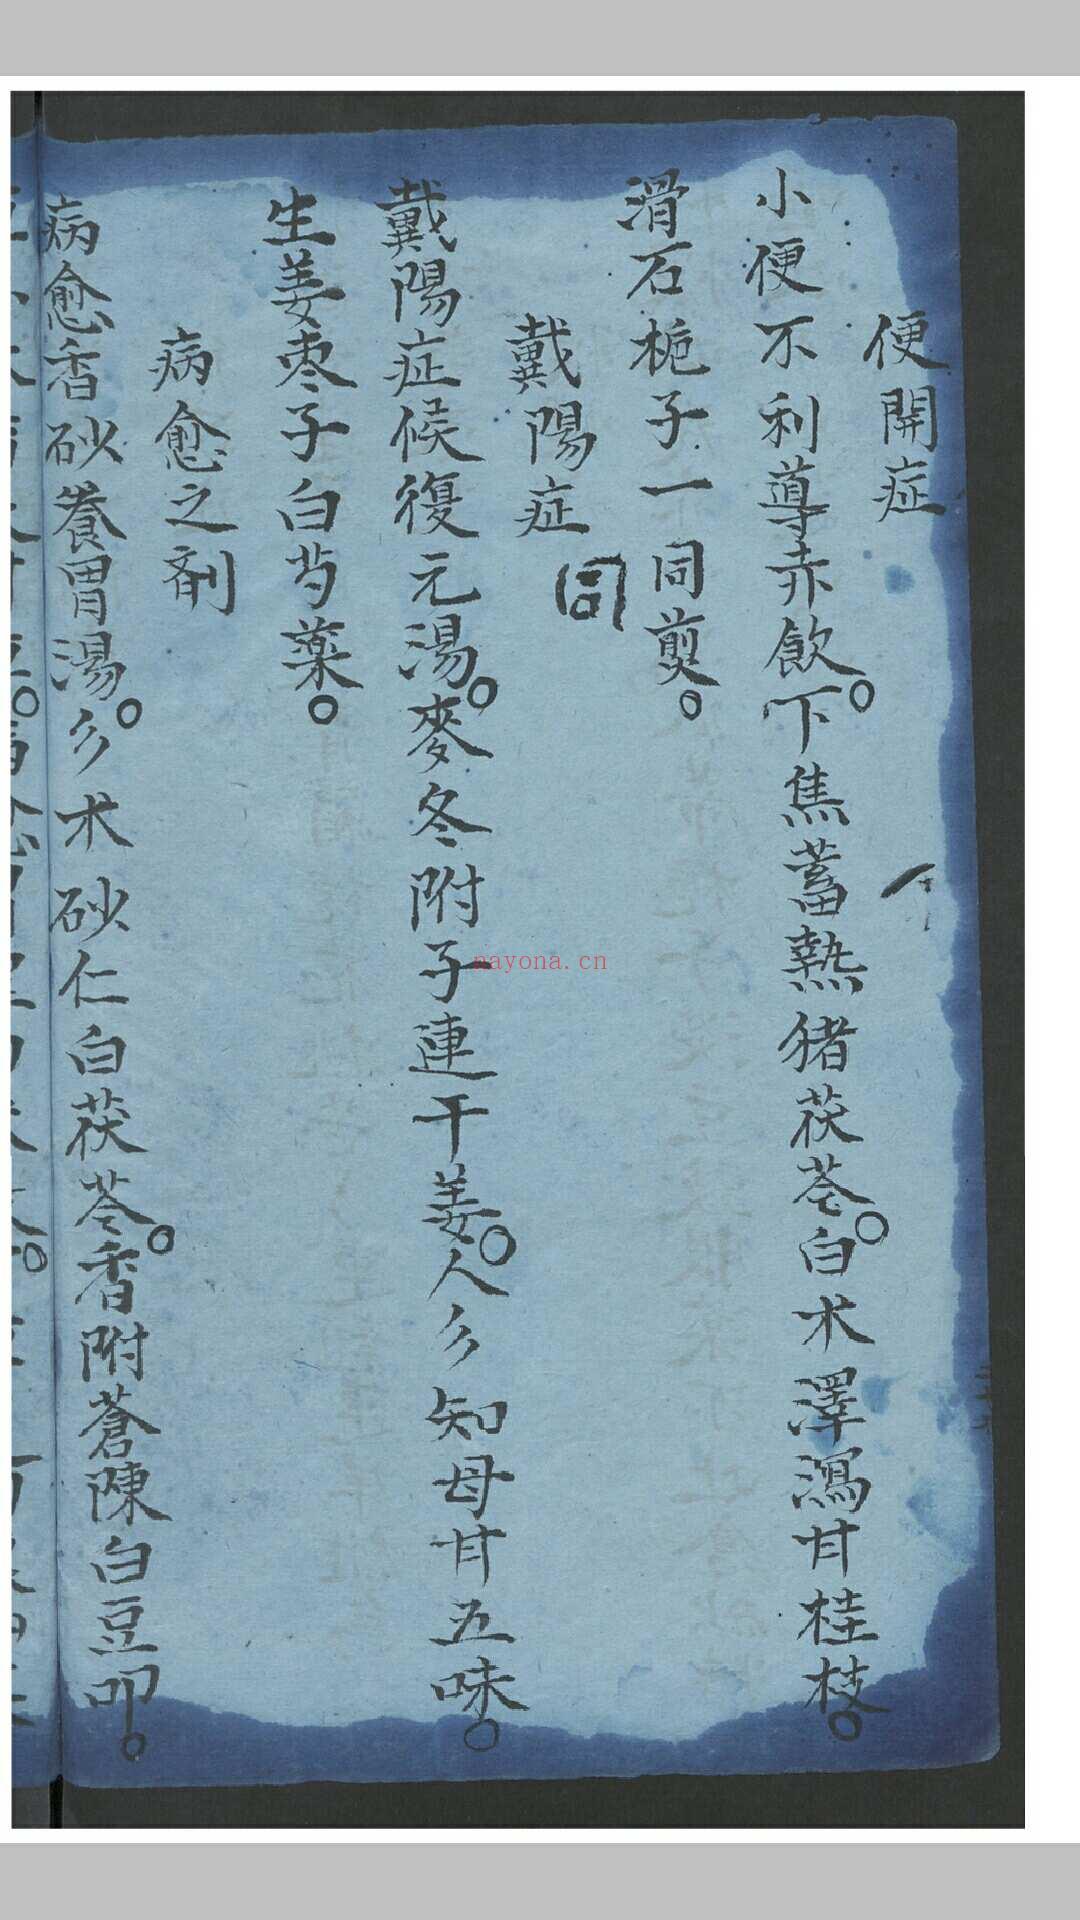 便開症
小便不利導赤飲。下焦蓄熱猪茯苓。白术澤瀉甘桂枝。
滑石梔子一同煎。
戴陽症
同
戴陽症候復元湯。麥冬附子連干姜。人参知母甘五味。
生姜枣子白芍藥。
病愈之剤
病愈香砂養胃湯。参术砂仁白茯苓。香附蒼陳白豆叩。
nayona.cn